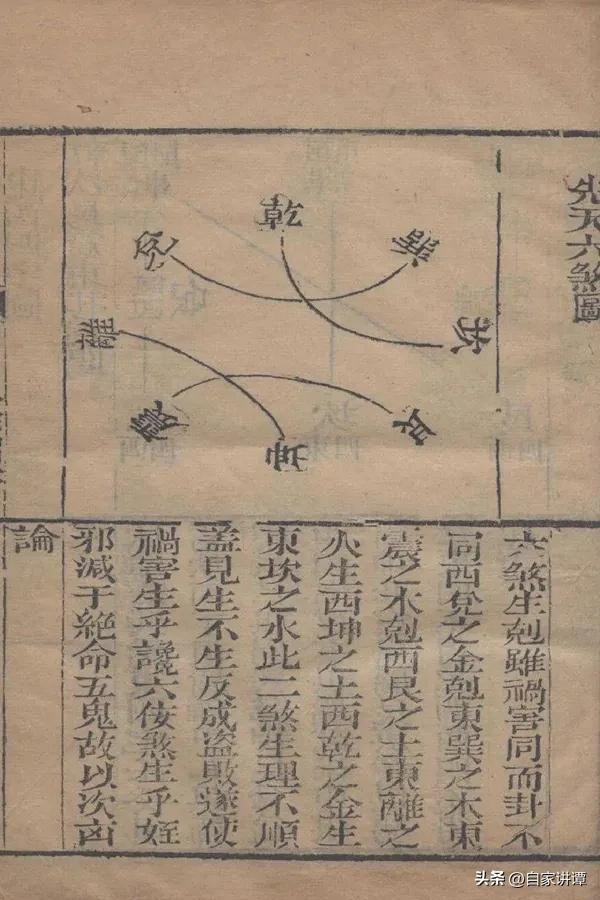 先天六煞圖
乾
巽
坎
艮
坤
震
離
兌
六煞生剋雖禍害同而卦不
同西兌之金剋東巽之木東
震之木剋西艮之土東離之
火生西坤之土西乾之金生
東坎之水此二煞生理不順
蓋見生不生反成盜敗遂使
禍害生乎讒六侫煞生乎婬
邪減于絶命五鬼故以次凶
論
头条 @自家讲谭